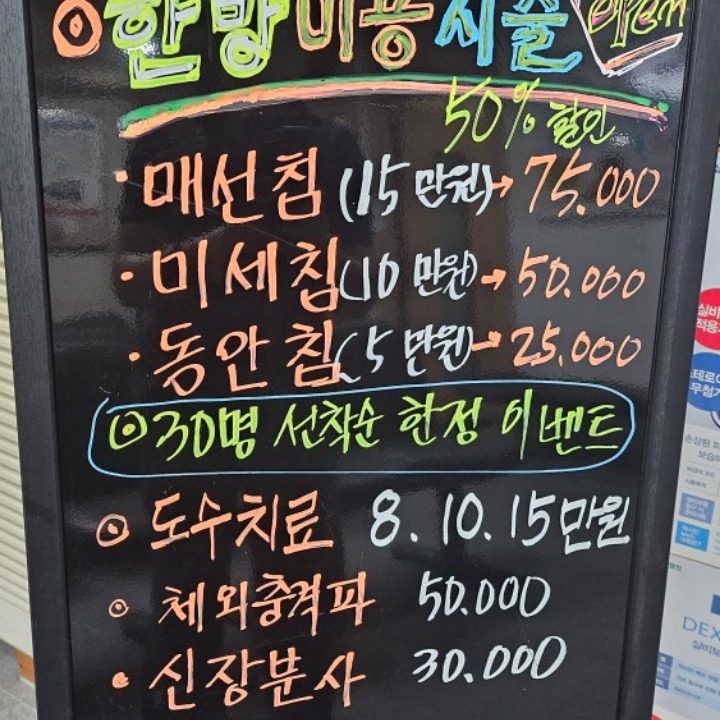 ◎ 한방 미용 시술 open
50% 할인
· 매선침 (15만원) → 75.000
· 미세침 (10만원) → 50.000
· 동안침 (5만원) → 25.000
◎ 30명 선착순 한정 이벤트
◎ 도수치료 8. 10. 15만원
◎ 체외충격파 50.000
◎ 신장분사 30.000
실비
적용
손상된
DEX
실비보